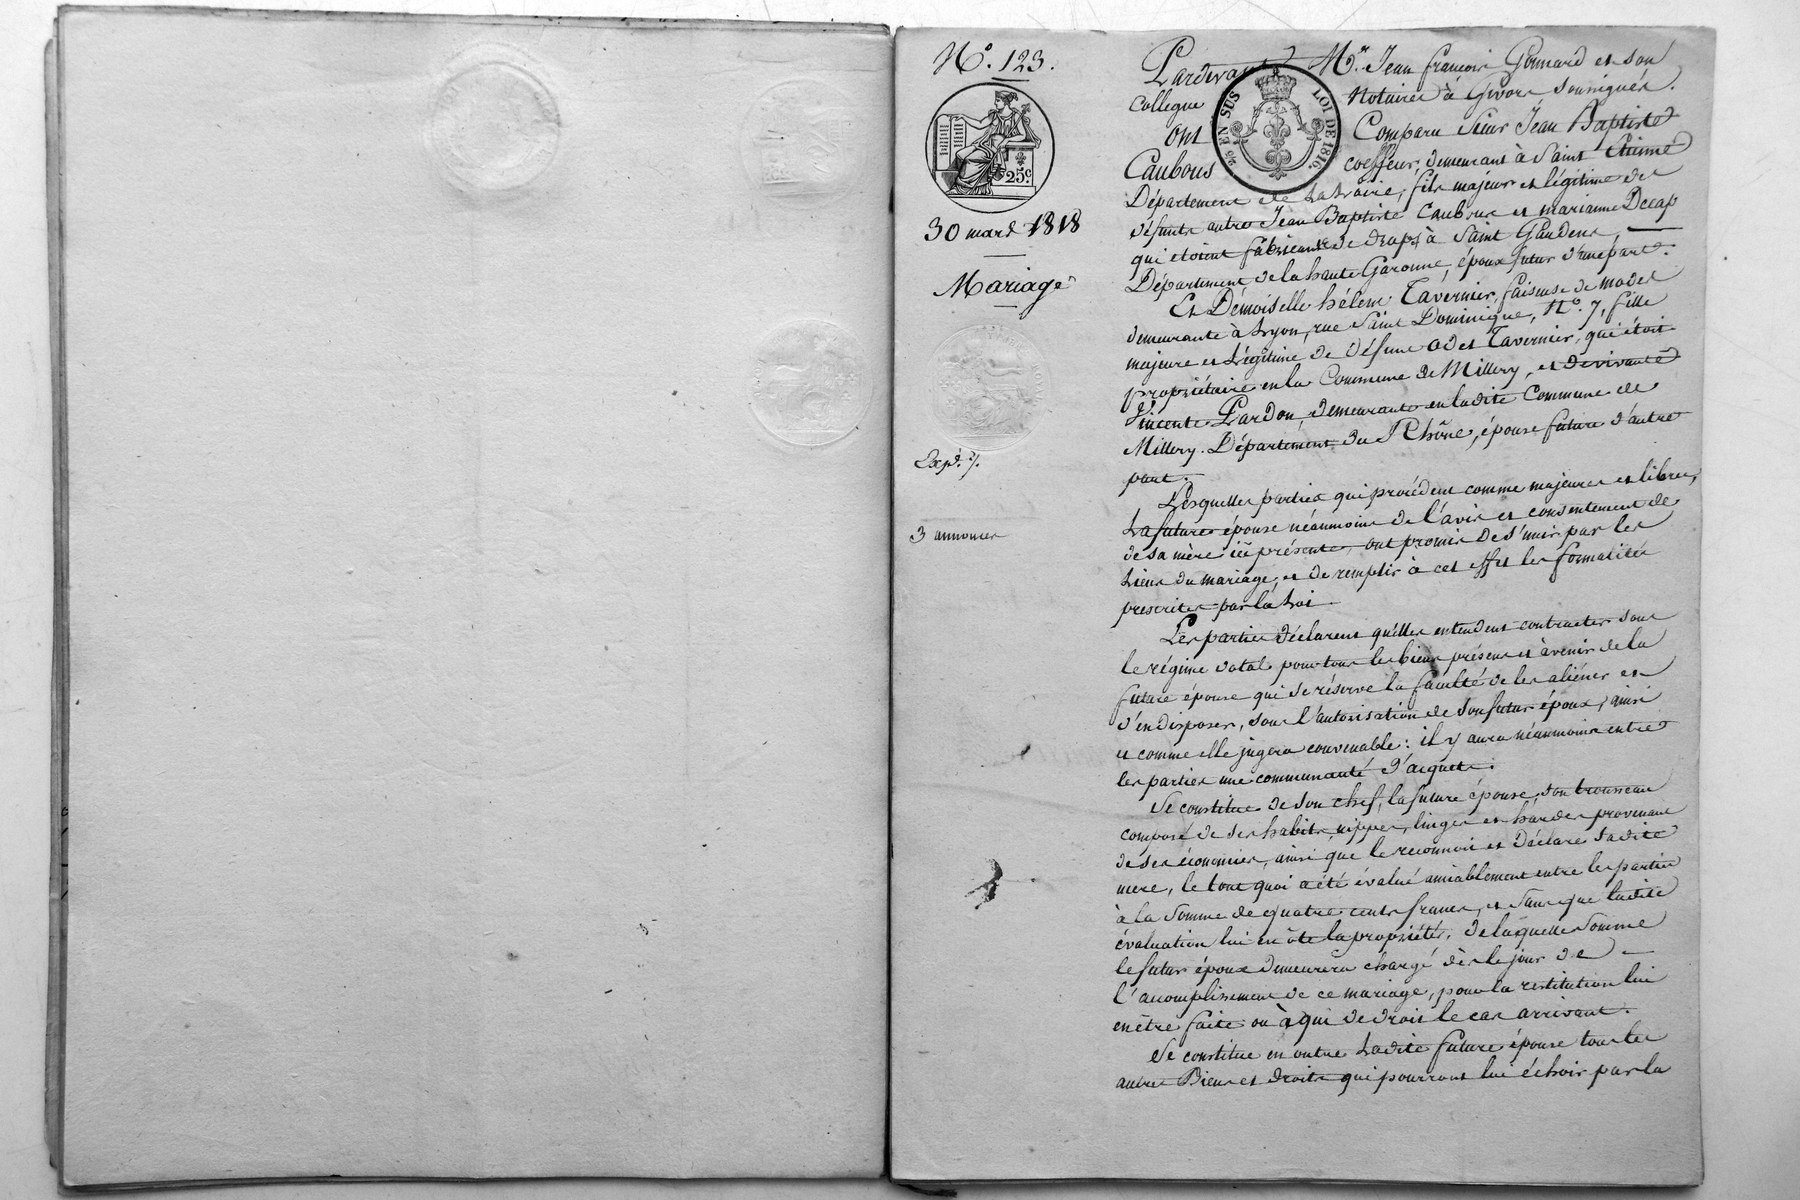 N.° 123.
25.c
30 mars 1818
Mariage
Exp. .
3 annonces
25 EN SUS
LOI DE 1816.
Pardevant M.r Jean françois Gonnard et son
Collegue Notaires à Givors soussignés.
ont Comparu Sieur Jean Baptiste
Caubous coeffeur, demeurant à Saint Etienne
Département de la Loire, fils majeur et légitime de
défunts autre Jean Baptiste Caubous et marianne Decap
qui étoient fabricants de draps à Saint Gaudens,
Département de la haute Garonne, époux futur d'une part.
Et Demoiselle hélene Tavernier, faiseuse de modes
demeurante à Lyon, rue Saint Dominique, N.° 7, fille
majeure et légitime de défunt Tavernier, qui étoit
propriétaire en la Commune de Millery, et de vivante
Vincente Pardon, demeurante en ladite Commune de
Millery. Département du Rhône, épouse future d'autre
part.
Lesquelles parties qui procédent comme majeures et libres,
La future épouse néanmoins de l'avis et consentement de
de sa mère ici présente, ont promis de s'unir par les
Liens du mariage, et de remplir à cet effet les formalités
prescrites par la Loi.
Les parties déclarent qu'elles entendent contracter sous
le régime dotal pour tous les biens présens et à venir de la
future épouse qui se réserve la faculté de les aliéner et
d'en disposer, sous l'autorisation de son futur époux, ainsi
et comme elle jugera convenable : il y aura néanmoins entre
les parties une communauté d'acquets.
Se constitue de son chef, la future épouse, son trousseau
composé de ses habits, nippes, linges et hardes provenant
de ses économies, ainsi que le reconnoit et déclare sadite
mere, le tout quoi a été évalué amiablement entre les parties
à la somme de quatre cents francs, et sans que ladite
évaluation lui en ôte la propriété, de laquelle somme
le futur époux demeurera chargé dès le jour de
l'acomplissement de ce mariage, pour la restitution lui
en être faite ou à qui de droit le cas arrivant.
Se constitue en outre Ladite future épouse tous les
autres Biens et droits qui pourront lui échoir par la